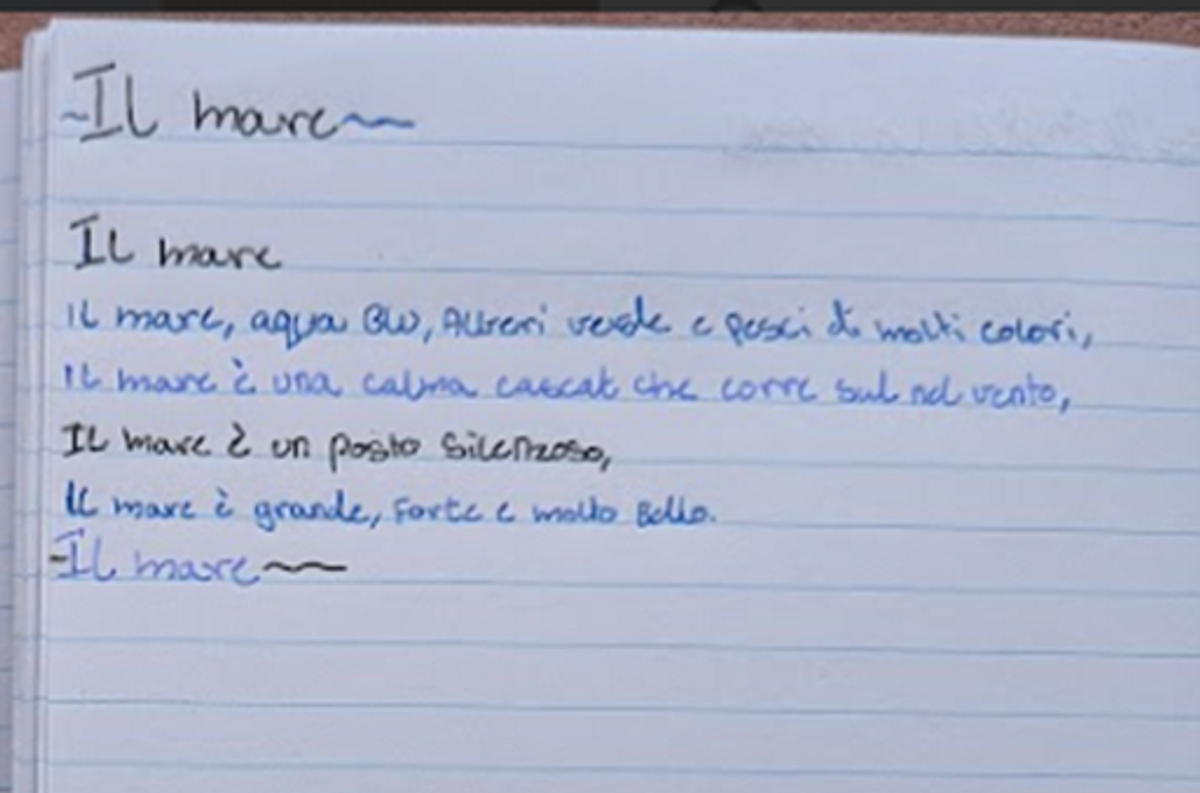 ~Il mare~~
Il mare
Il mare, aqua BLU, Alberi verde e pesci di molti colori,
Il mare è una calma cascat che corre sul nel vento,
Il mare è un posto silenzoso,
Il mare è grande, forte e molto Bello.
-Il mare~~